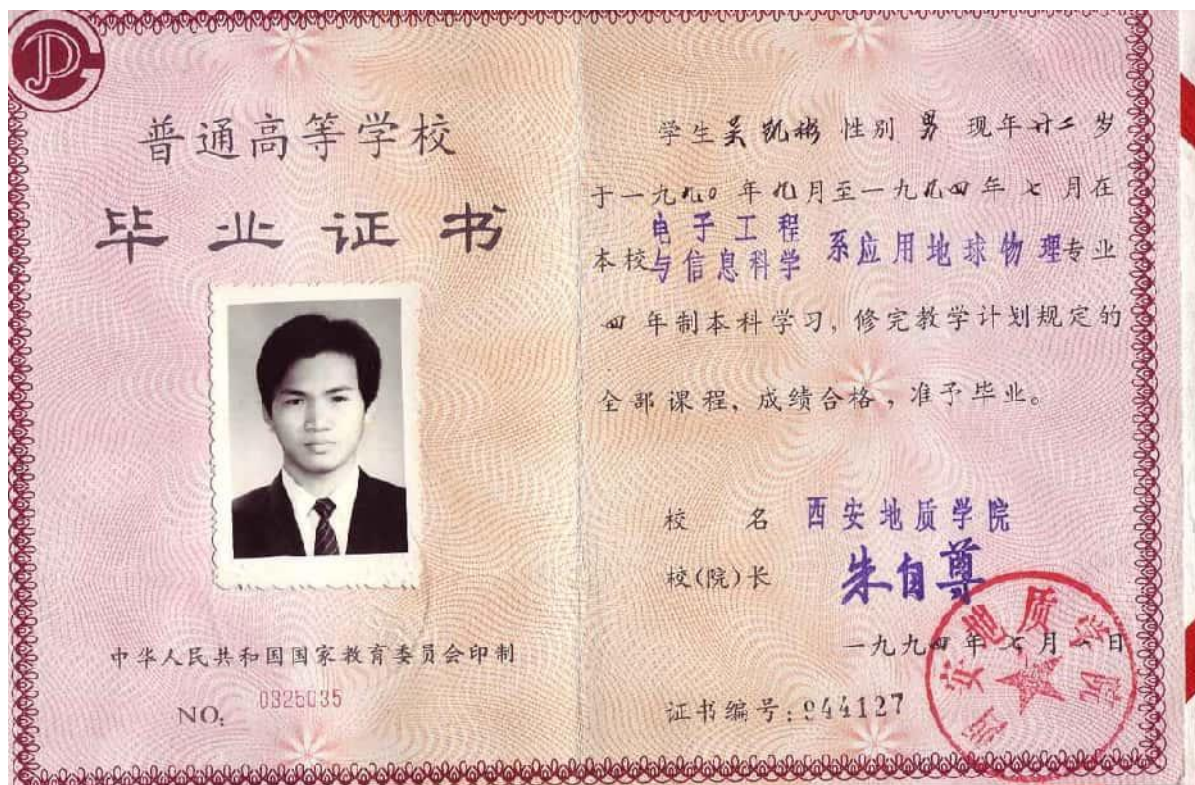 普通高等学校
毕业证书
中华人民共和国国家教育委员会印制
NO:
学生吴凯彬 性别 男 现年廿二岁
于一九九0年九月至一九九四年七月在
本校电子工程与信息科学系应用地球物理专业
四年制本科学习，修完教学计划规定的
全部课程、成绩合格，准予毕业。
校 名 西安地质学院
校(院)长 朱自尊
一九九四年七月一日
证书编号:944127
西安地质学院